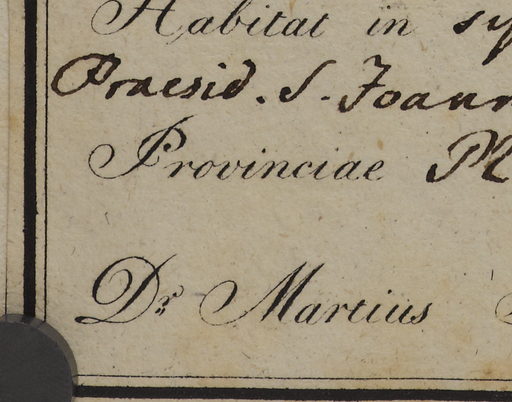 Habitat in sy
Praesid. S. Joann
Provinciae
Dr. Martius